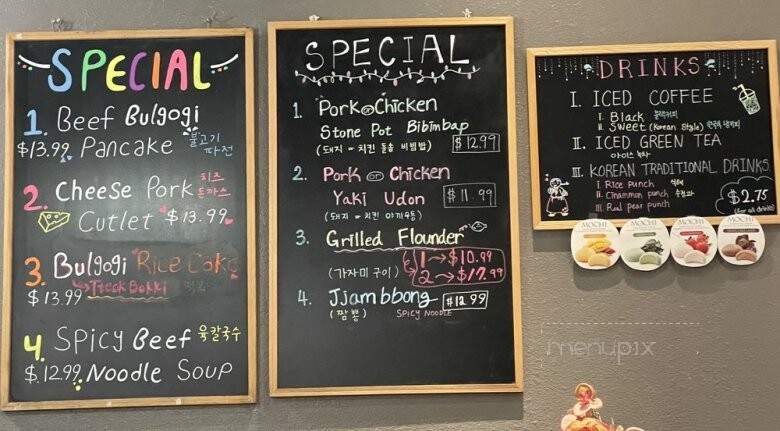 SPECIAL
1. Beef Bulgogi
$13.99 Pancake 불고기 파전
2. Cheese Pork 치즈 돈까스
Cutlet $13.99
3. Bulgogi Rice Cake
$13.99 Tteok Bokki
4. Spicy Beef 육칼국수
$12.99 Noodle Soup
SPECIAL
1. Pork or Chicken
Stone Pot Bibimbap
(돼지 - 치킨 돌솥 비빔밥) $12.99
2. Pork or Chicken
Yaki Udon $11.99
(돼지 - 치킨 야끼우동)
3. Grilled Flounder
(가자미 구이) 1 → $10.99
2 → $17.99
4. Jjambbong $12.99
(짬뽕) SPICY NOODLE
DRINKS
I. ICED COFFEE
I. Black 블랙커피
II. Sweet (Korean Style)
II. ICED GREEN TEA
아이스 녹차
III. KOREAN TRADITIONAL DRINKS
I. Rice Punch 식혜
II. Cinammon punch 수정과
III. Real pear punch
$2.75
(for all drinks)
MOCHI MOCHI MOCHI MOCHI
menupix